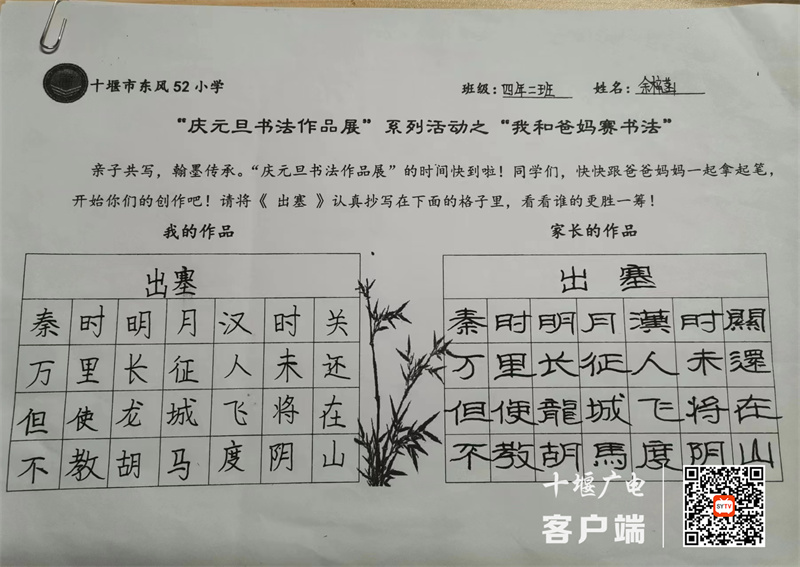 十堰市东风52小学 班级：四年二班 姓名：余梓菡
“庆元旦书法作品展”系列活动之“我和爸妈赛书法”
亲子共写，翰墨传承。“庆元旦书法作品展”的时间快到啦！同学们，快快跟爸爸妈妈一起拿起笔，
开始你们的创作吧！请将《 出塞 》认真抄写在下面的格子里，看看谁的更胜一筹！
我的作品
出塞
秦时明月汉时关
万里长征人未还
但使龙城飞将在
不教胡马度阴山
家长的作品
出塞
秦时明月漢时關
万里长征人未還
但使龍城飞将在
不教胡馬度阴山
十堰广电
客户端
SYTV